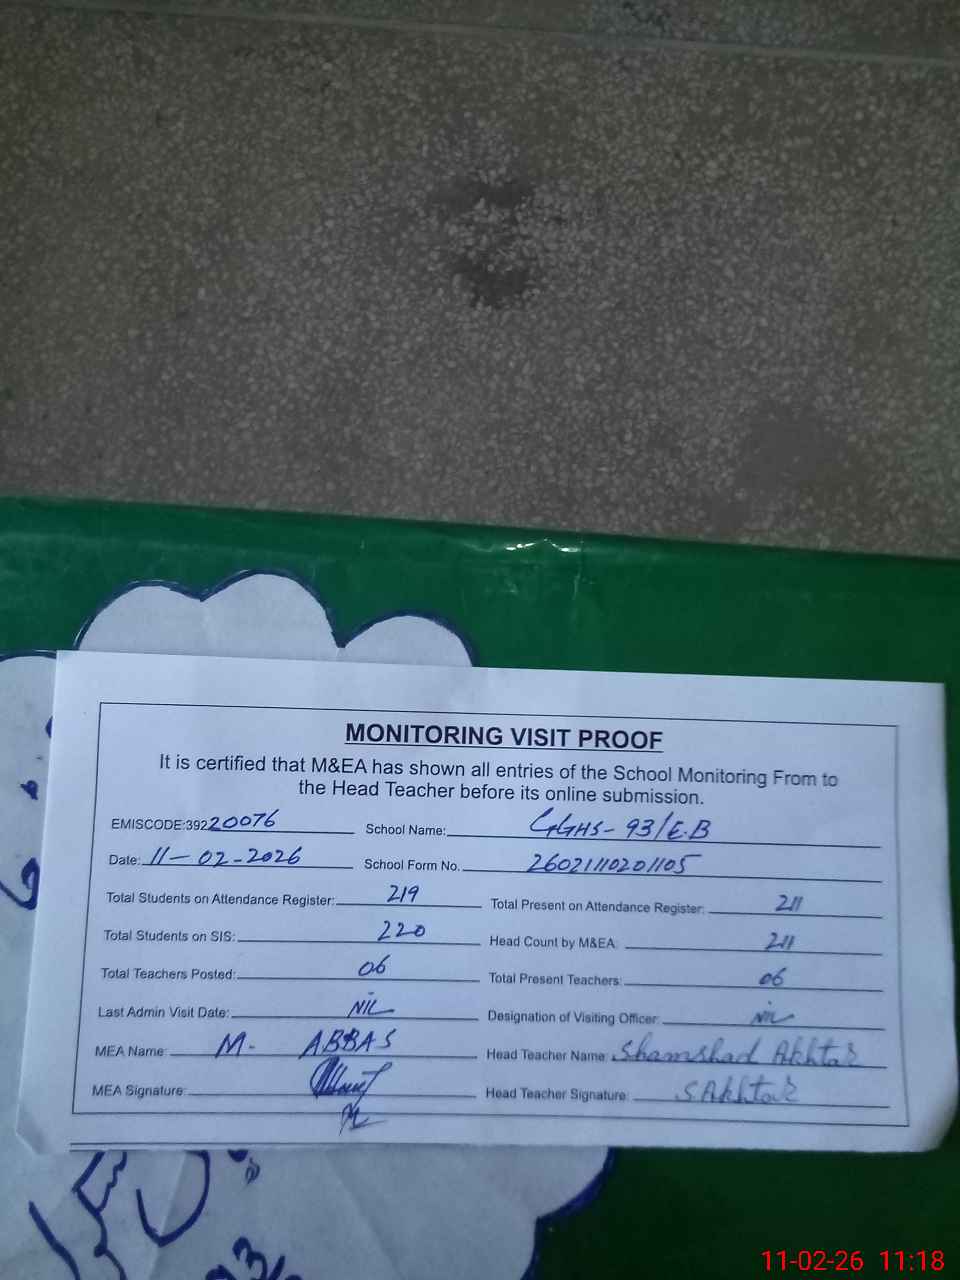 MONITORING VISIT PROOF
It is certified that M&EA has shown all entries of the School Monitoring From to
the Head Teacher before its online submission.
EMISCODE:39220076 School Name: GGHS-93/E.B
Date: 11-02-2026 School Form No. 26021110201105
Total Students on Attendance Register: 219 Total Present on Attendance Register: 211
Total Students on SIS: 220 Head Count by M&EA: 211
Total Teachers Posted: 06 Total Present Teachers: 06
Last Admin Visit Date: NIL Designation of Visiting Officer: NIL
MEA Name: M. ABBAS Head Teacher Name: Shamshad Akhtar
MEA Signature: Head Teacher Signature: SAkhtar
11-02-26 11:18